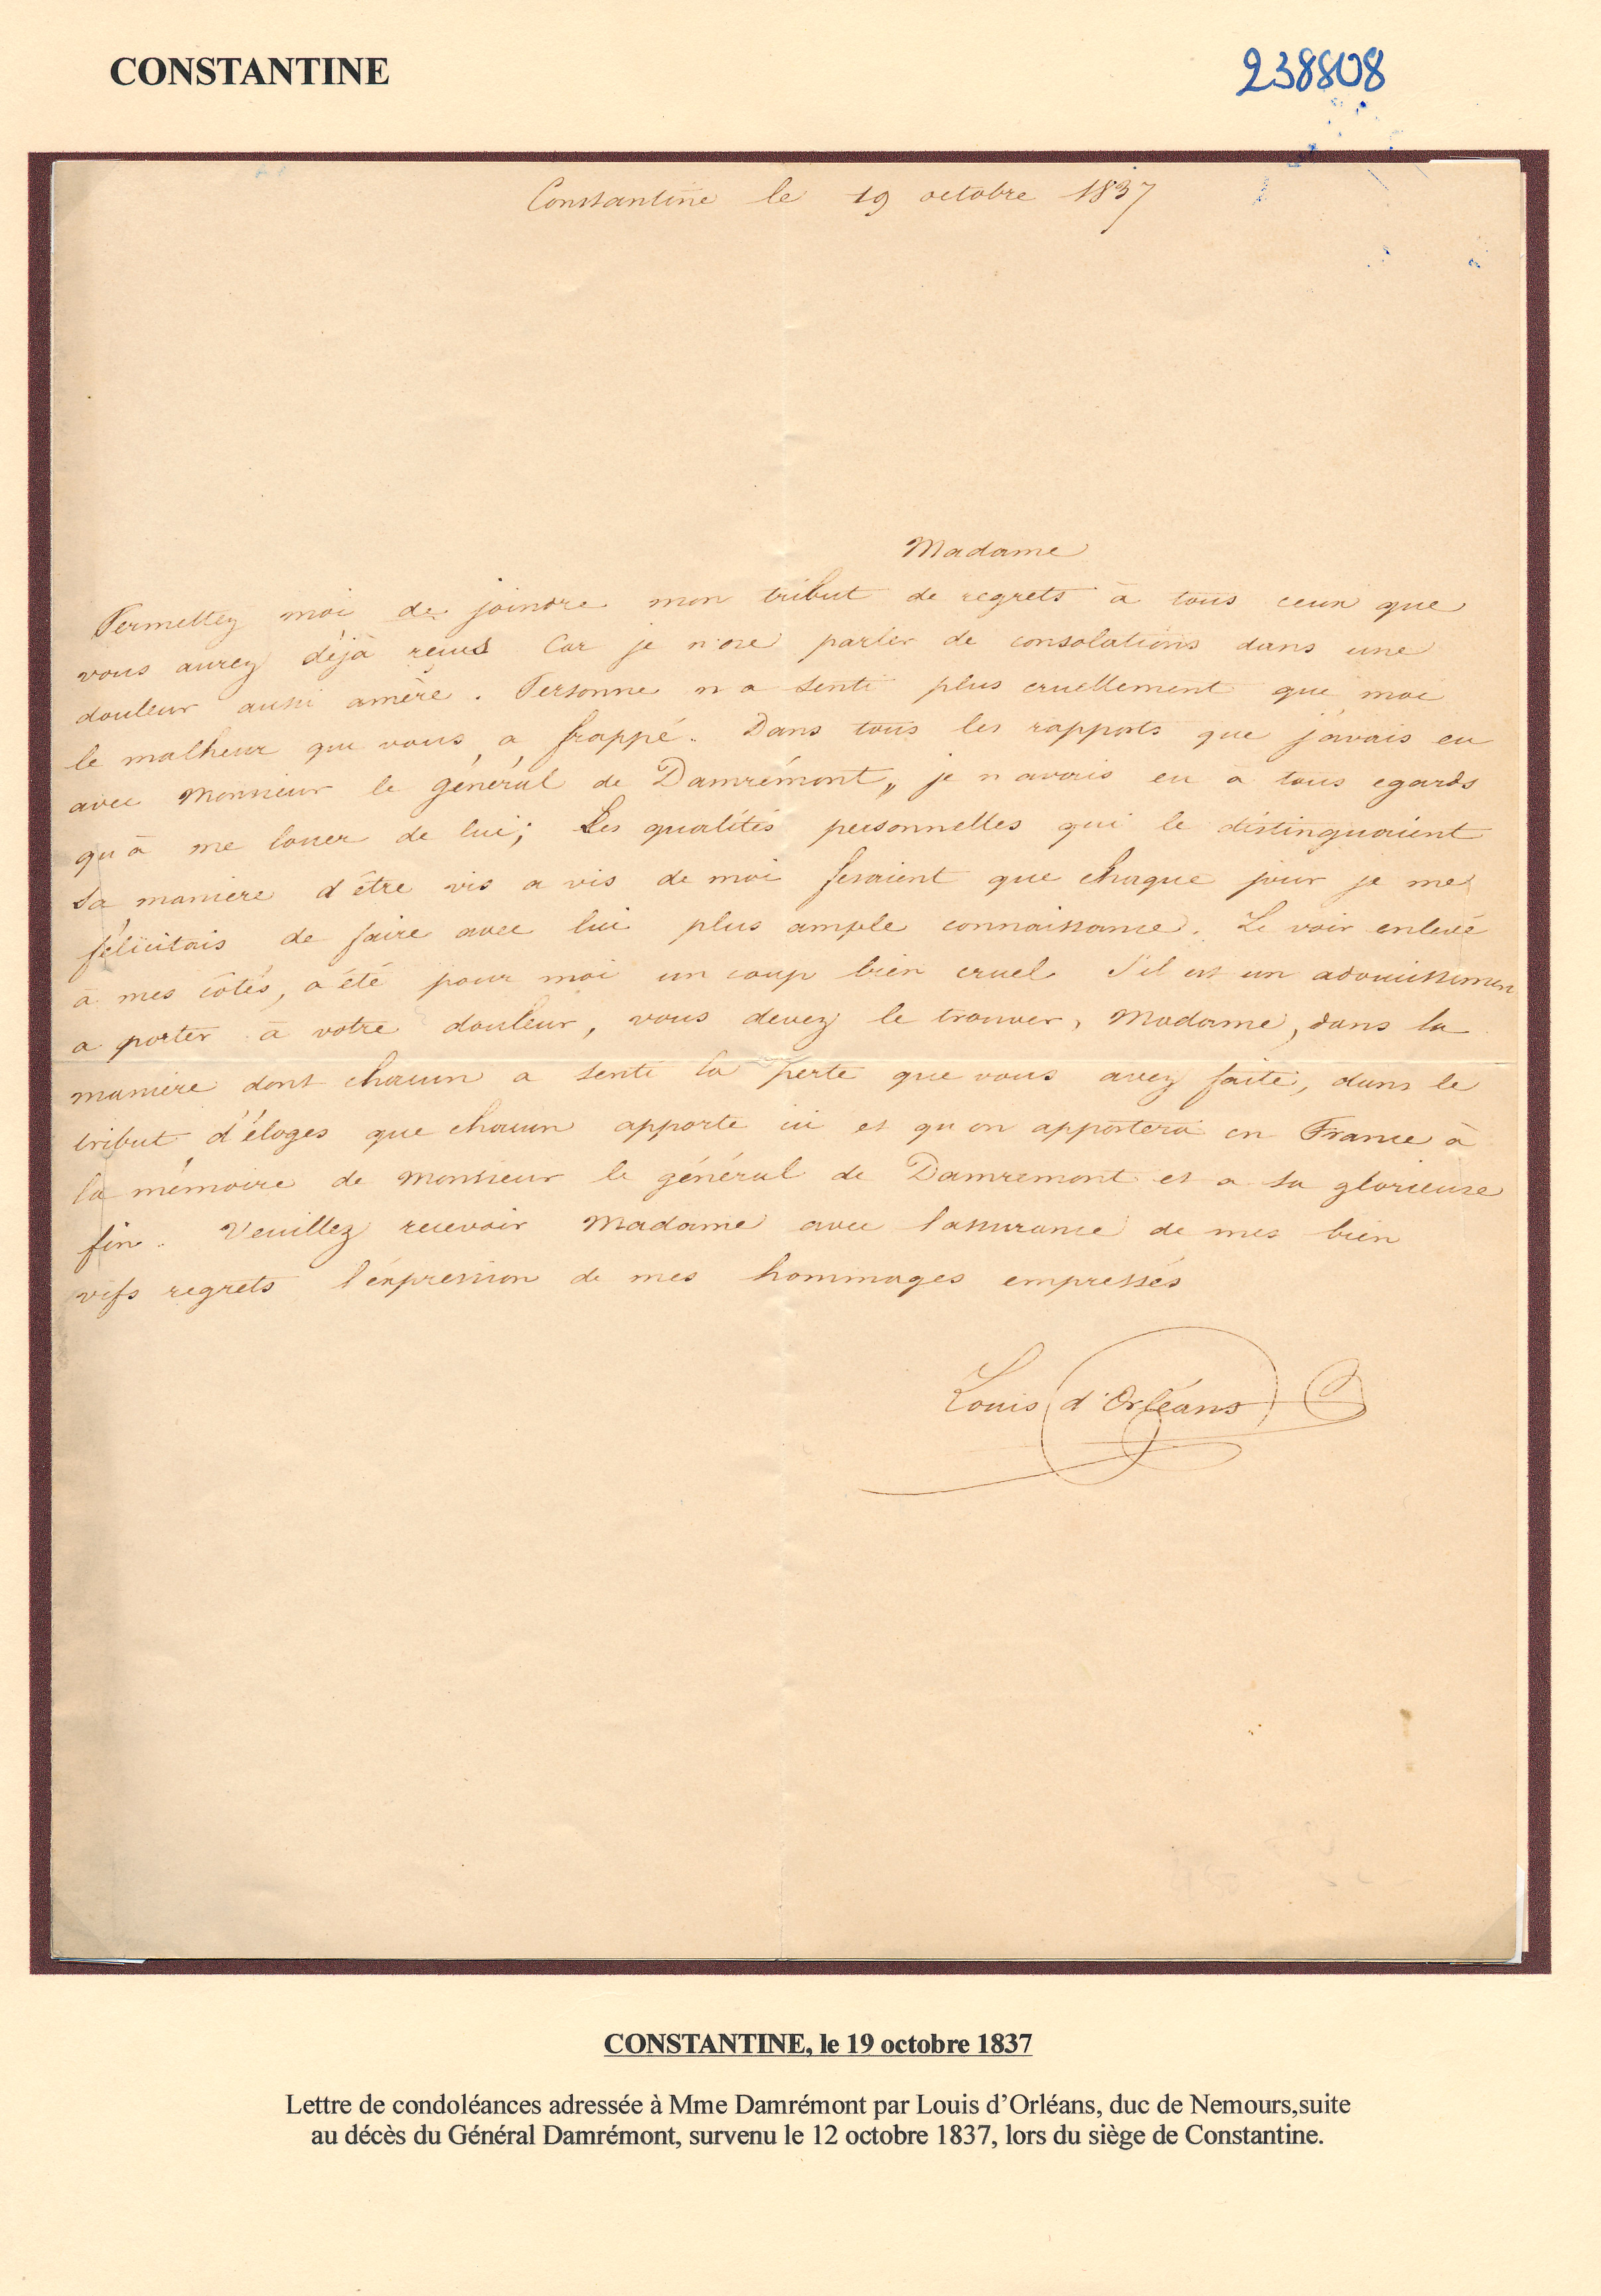 CONSTANTINE
238808
Constantine le 19 octobre 1837
Madame
Permettez moi de joindre mon tribut de regrets à tous ceux que
vous aurez déjà reçus Car je n'ose parler de consolations dans une
douleur aussi amère. Personne n a senti plus cruellement que moi
le malheur qui vous a frappé. Dans tous les rapports que j'avais eu
avec Monsieur le général de Damrémont, je n avais eu à tous egards
qu à me louer de lui; Les qualités personnelles qui le distinguaient
sa manière d'être vis a vis de moi fesaient que chaque jour je me
félicitais de faire avec lui plus ample connaissance. Le voir enlevé
à mes côtés, a été pour moi un coup bien cruel S'il est un adoucissemen
a porter à votre douleur, vous devez le trouver, Madame, dans la
manière dont chacun a senti la perte que vous avez faite, dans le
tribut d'éloges que chacun apporte ici et qu on apportera en France à
la mémoire de Monsieur le général de Damremont et a sa glorieuse
fin. Veuillez recevoir Madame avec l'assurance de mes bien
vifs regrets l'expression de mes hommages empressés
Louis d'Orléans
CONSTANTINE, le 19 octobre 1837
Lettre de condoléances adressée à Mme Damrémont par Louis d'Orléans, duc de Nemours,suite
au décès du Général Damrémont, survenu le 12 octobre 1837, lors du siège de Constantine.